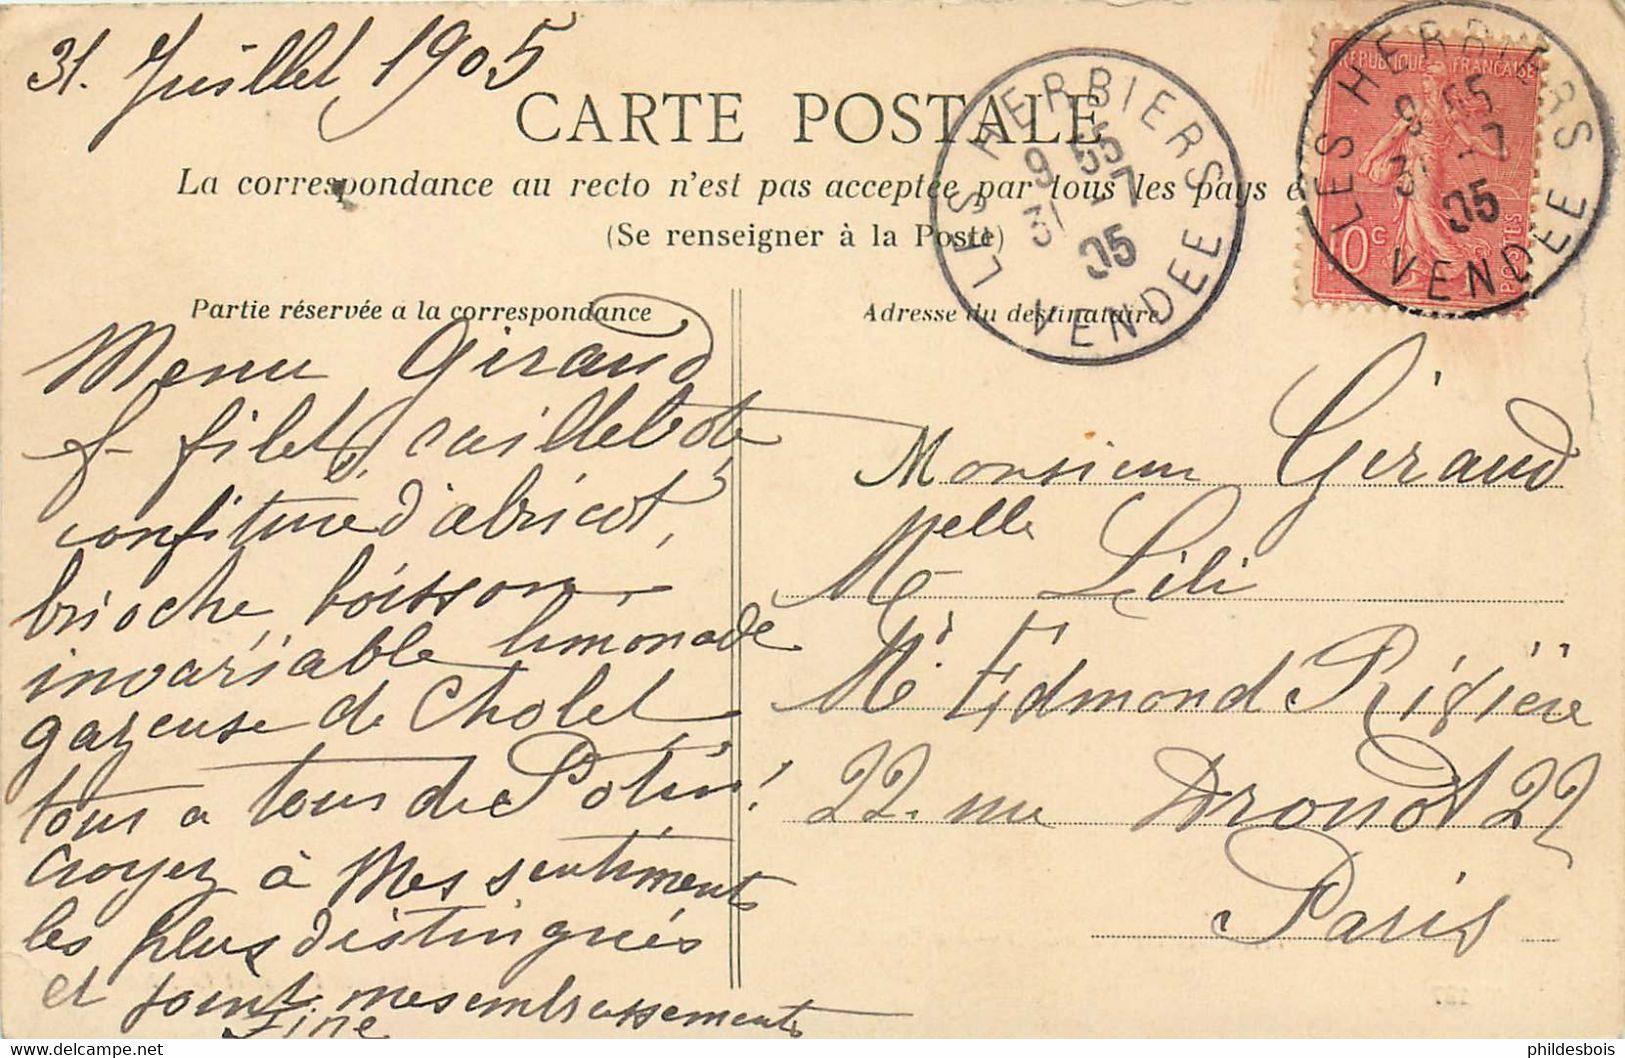 31. Juillet 1905
CARTE POSTALE
La correspondance au recto n'est pas acceptée par tous les pays é
(Se renseigner à la Poste)
LES HERBIERS
9 55
31 - 7
05
VENDEE
REPUBLIQUE FRANÇAISE
10 c
POSTES
LES HERBIERS
9 55
31 - 7
05
VENDÉE
Partie réservée a la correspondance
Menu Giraud
filet, caillebote
confiture d'abricot,
brioche, boisson,
invariable limonade
gazeuse de Cholet,
tour a tour de Potin!
croyez à Mes sentiments
les plus distingués
et joint mes embrassements
Fine
Adresse du destinataire
Monsieur Giraud
Melle Lili
Mr Edmond Rivière
22. rue Drouot 22
Paris
phildesbois